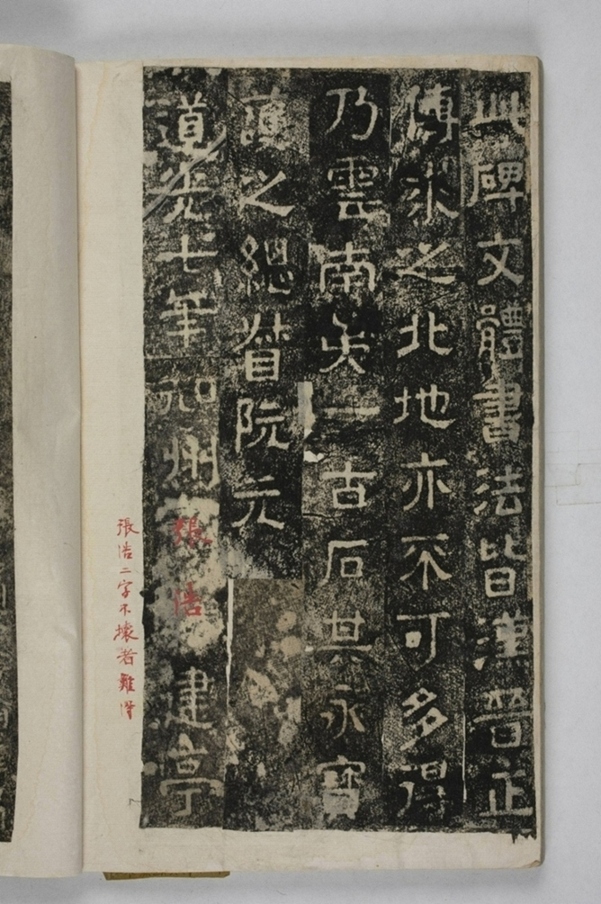 此碑文體書法皆漢晉正
傳求之北地亦不可多得
乃雲南第一古石其永寶
護之總督阮元
道光七年知州張浩建亭
張浩二字不壞者難得